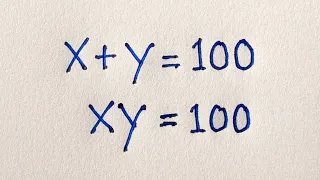 X + Y = 100
XY = 100